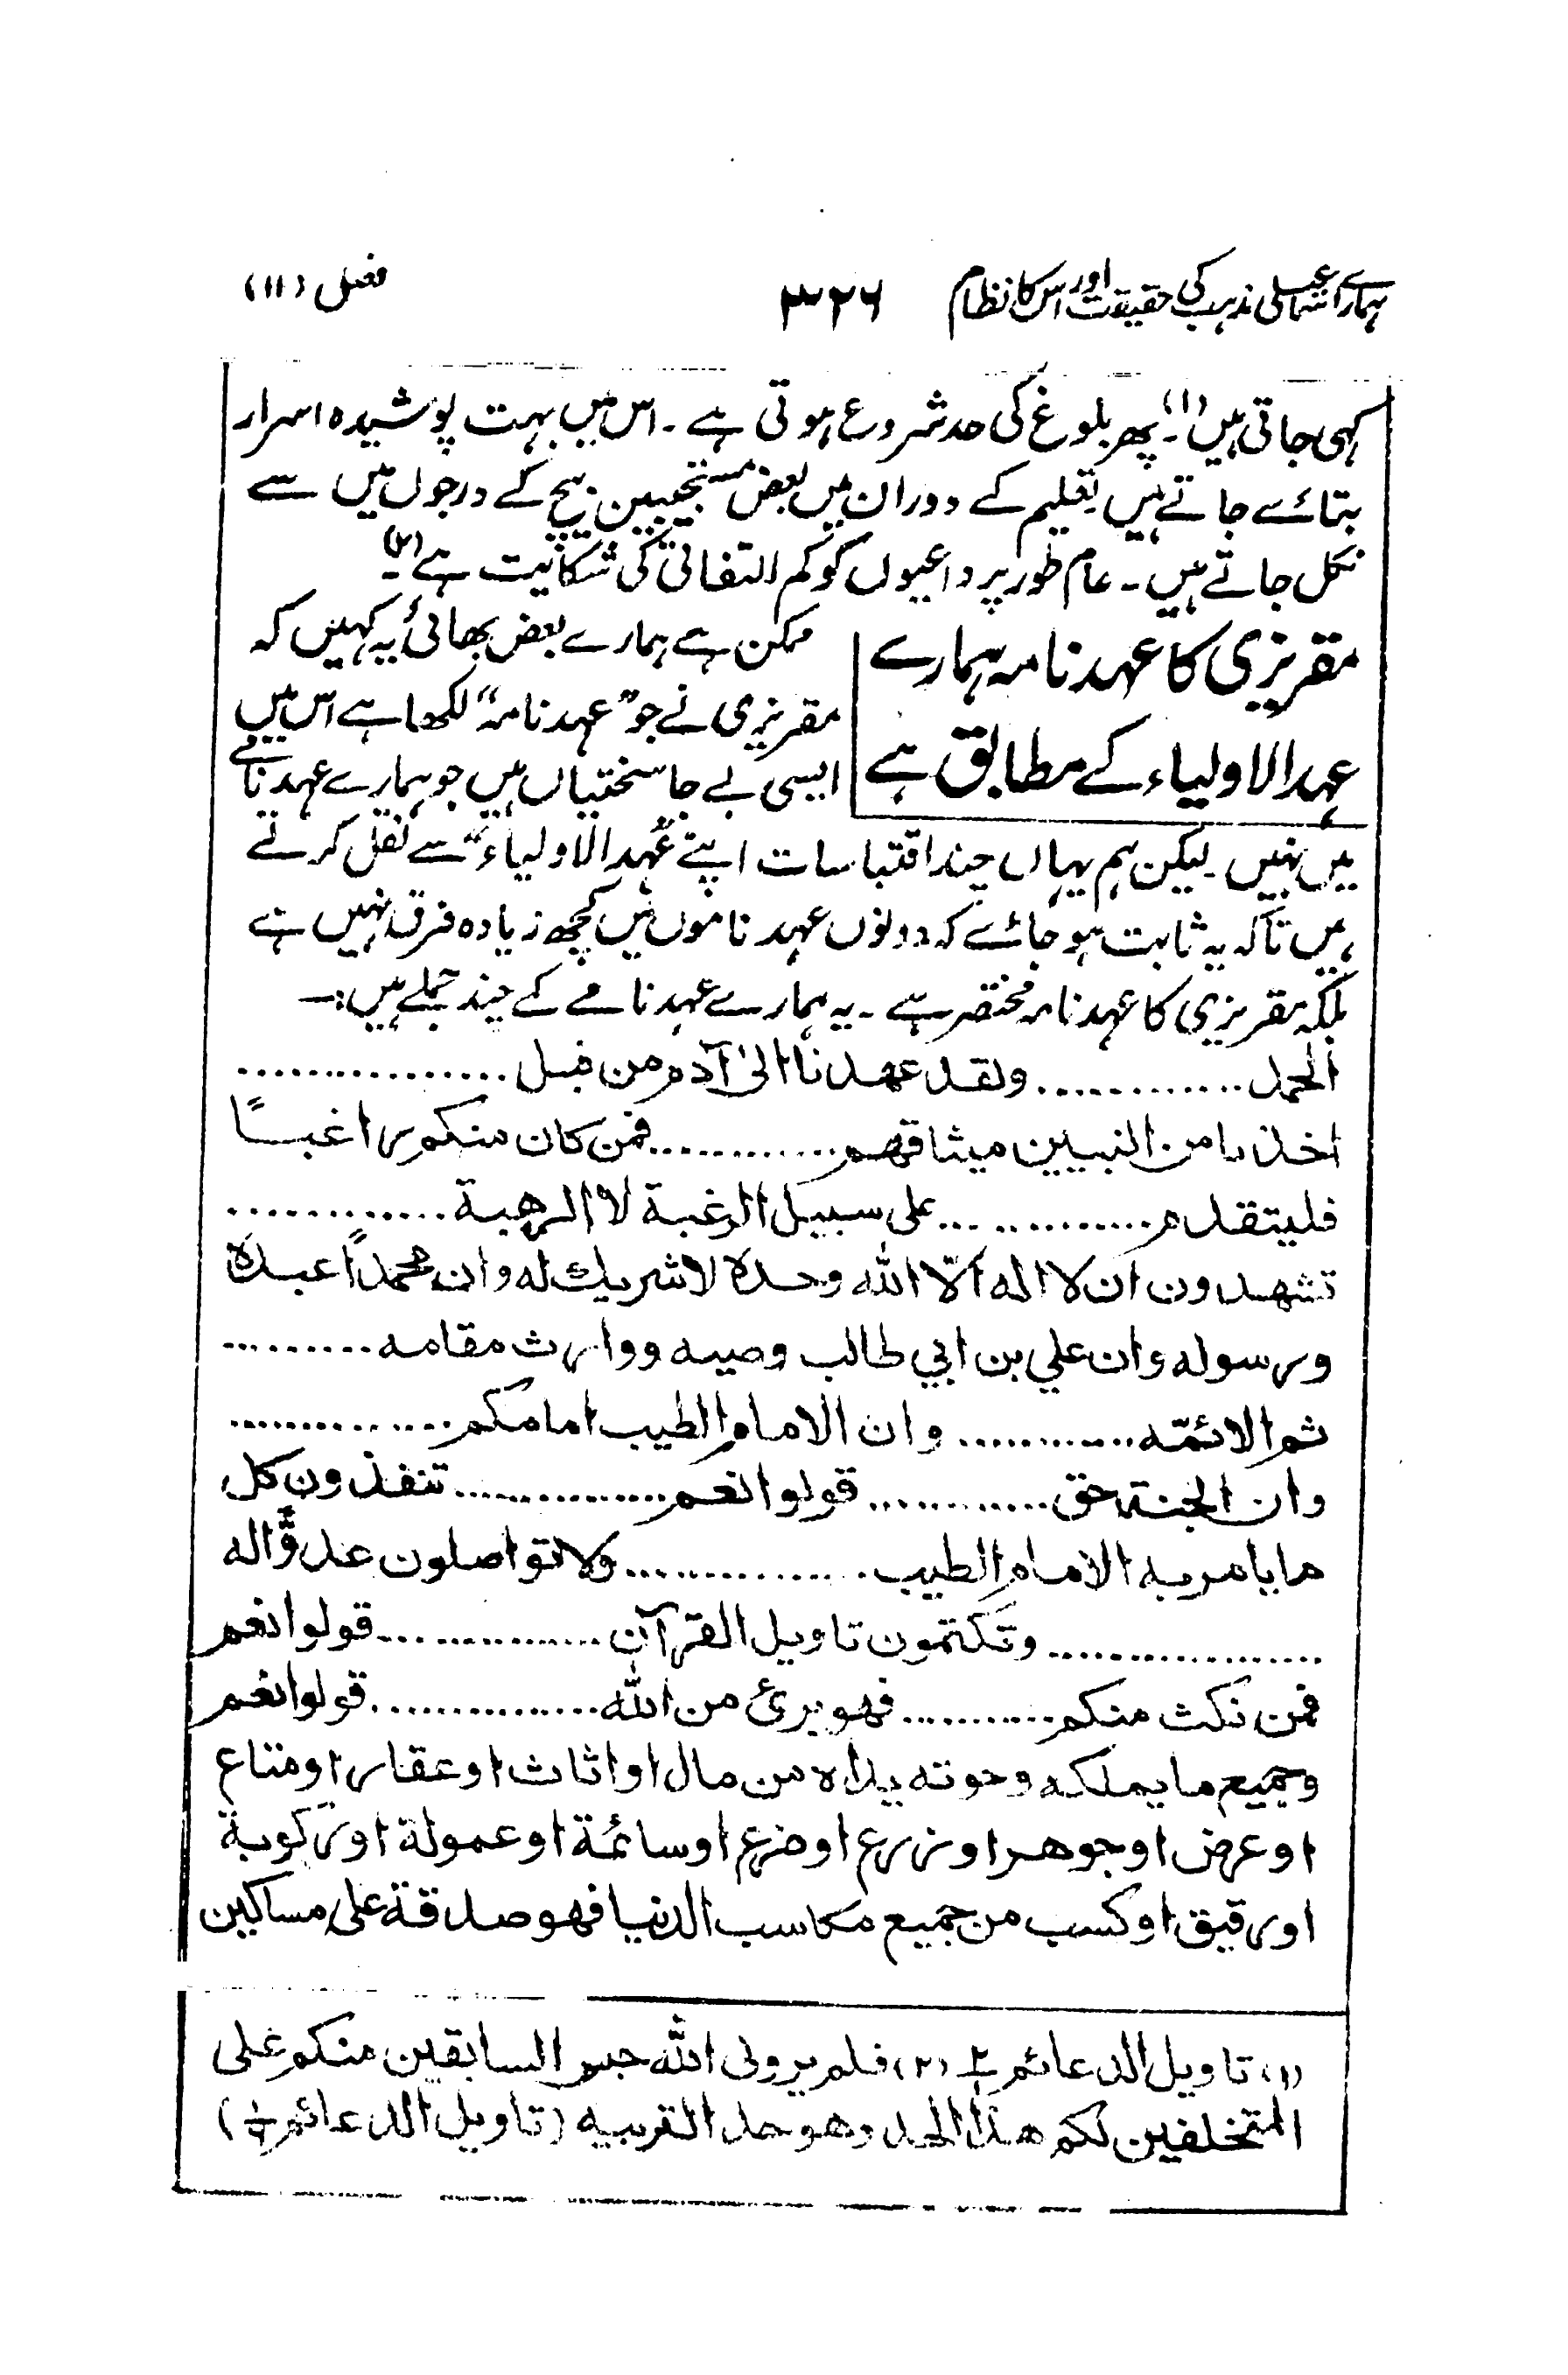 ہمارے اسماعیلی مذہب کی حقیقت اور اس کا نظام ۳۲۶ فصل (۱۱)
کہی جاتی ہیں (۱)۔ پھر بلوغ کی حد شروع ہوتی ہے ۔ اس میں بہت پوشیدہ اسرار
بتائے جاتے ہیں تعلیم کے دوران میں بعض مستجیبین بیچ کے درجوں میں سے
نکل جاتے ہیں ۔ عام طور پر داعیوں کو کم التفاتی کی شکایت ہے (۲)۔
مقریزی کا عہد نامہ ہمارے
عہد الاولیاء کے مطابق ہے
ممکن ہے ہمارے بعض بھائی یہ کہیں کہ
مقریزی نے جو "عہد نامہ" لکھا ہے اس میں
ایسی بے جا سختیاں ہیں جو ہمارے عہد نامے
میں نہیں ۔ لیکن ہم یہاں چند اقتباسات اپنے "عہد الاولیاء" سے نقل کرتے
ہیں تاکہ یہ ثابت ہو جائے کہ دونوں عہد ناموں میں کچھ زیادہ فرق نہیں ہے
بلکہ مقریزی کا عہد نامہ مختصر ہے ۔ یہ ہمارے عہد نامے کے چند جملے ہیں :۔
الحمد ............. ولقد عهدنا الىٰ آدم من قبل ...............
اخذنا من النبیین میثاقهم ............. فمن كان منكم راغبًا
فلیتقدم .............. على سبیل الرغبة لا الرهبة ............
تشهدون ان لا اله الّا الله وحده لا شریك له وان محمدًا عبده
ورسوله وان علي بن ابي طالب وصیه ووارث مقامه .........
ثم الائمّه ............ وان الامام الطیب امامكم ..............
وان الجنة حق ............ قولوا نعم .............. تنفذون كل
ما یامر به الامام الطیب .............. ولا تواصلون عدوًّا له
.................. وتكتمون تاویل القرآن .............. قولوا نعم
فمن نكث منكم ........... فهو برئ من الله .............. قولوا نعم
وجمیع ما یملكه وحوته یداه من مال او اثاث او عقار او متاع
او عرض او جوهر او زرع او ضرع او سائمة او عمولة او ركوبة
او رقیق او كسب من جمیع مكاسب الدنیا فهو صدقة على مساكین
(۱) تاویل الدعائم (۲) فلم یر ولی الله السابقین منكم على
المتخلفین لكم هذا الحد وهو حد التربیه (تاویل الدعائم)